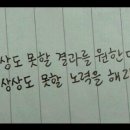 상도 못할 결과를 원한다
상상도 못할 노력을 해라